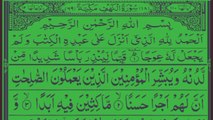 سُوْرَةُ الْكَهْفِ مَكِّيَّةٌ
بِسْمِ اللّٰهِ الرَّحْمٰنِ الرَّحِيْمِ
اَلْحَمْدُ لِلّٰهِ الَّذِيْٓ اَنْزَلَ عَلٰى عَبْدِهِ الْكِتٰبَ وَ لَمْ
يَجْعَلْ لَّهٗ عِوَجًا ۝ قَيِّمًا لِّيُنْذِرَ بَاْسًا شَدِيْدًا مِّنْ
لَّدُنْهُ وَ يُبَشِّرَ الْمُؤْمِنِيْنَ الَّذِيْنَ يَعْمَلُوْنَ الصّٰلِحٰتِ
اَنَّ لَهُمْ اَجْرًا حَسَنًا ۝ مَّاكِثِيْنَ فِيْهِ اَبَدًا ۝ وَّ